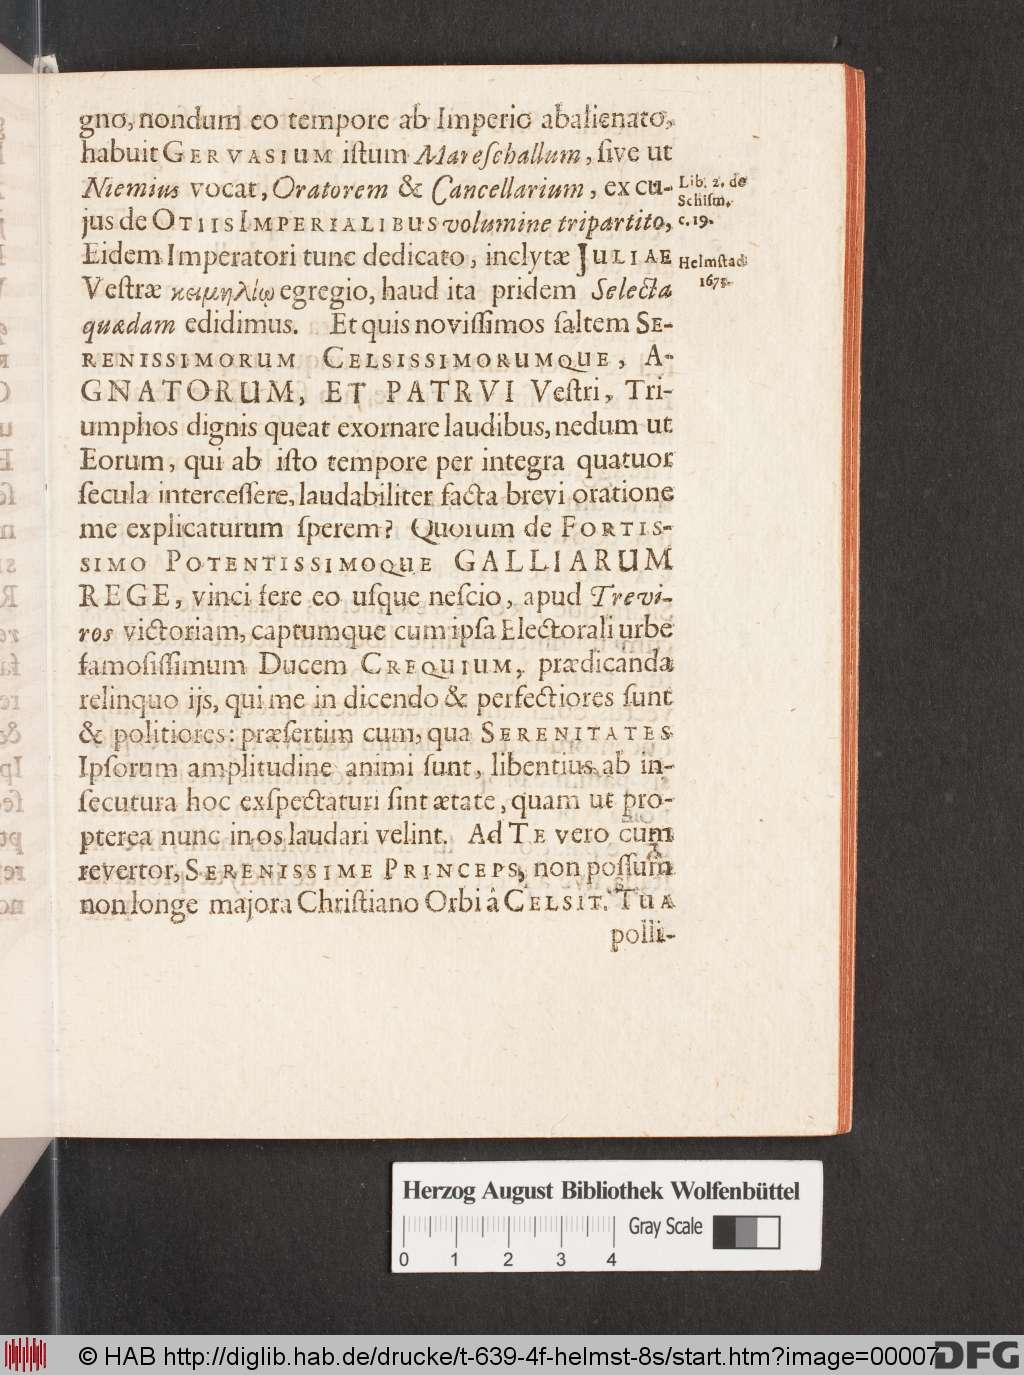 gno, nondum eo tempore ab Imperio abalienato,
habuit GERVASIUM iſtum Mareſchallum, ſive ut
Niemius vocat, Oratorem & Cancellarium, ex cu-
Lib. 2. de
Schiſm.
jus de OTIIS IMPERIALIBUS volumine tripartito,
c. 19.
Eidem Imperatori tunc dedicato, inclytæ JULIAE
Helmſtad.
Veſtræ κειμηλίῳ egregio, haud ita pridem Selecta
1673.
quædam edidimus. Et quis noviſſimos ſaltem SE-
RENISSIMORUM CELSISSIMORUMQUE, A-
GNATORUM, ET PATRVI Veſtri, Tri-
umphos dignis queat exornare laudibus, nedum ut
Eorum, qui ab iſto tempore per integra quatuor
ſecula interceſſere, laudabiliter facta brevi oratione
me explicaturum ſperem? Quorum de FORTIS-
SIMO POTENTISSIMOQUE GALLIARUM
REGE, vinci fere eo uſque neſcio, apud Trevi-
ros victoriam, captumque cum ipſa Electorali urbe
famoſiſſimum Ducem CREQUIUM, prædicanda
relinquo ijs, qui me in dicendo & perfectiores ſunt
& politiores: præſertim cum, qua SERENITATES
Ipſorum amplitudine animi ſunt, libentius ab in-
ſecutura hoc exſpectaturi ſint ætate, quam ut pro-
pterea nunc in os laudari velint. Ad TE vero cum
revertor, SERENISSIME PRINCEPS, non poſſum
non longe majora Chriſtiano Orbi â CELSIT. TUA
polli-
Herzog August Bibliothek Wolfenbüttel
Gray Scale
0 1 2 3 4
© HAB http://diglib.hab.de/drucke/t-639-4f-helmst-8s/start.htm?image=00007
DFG